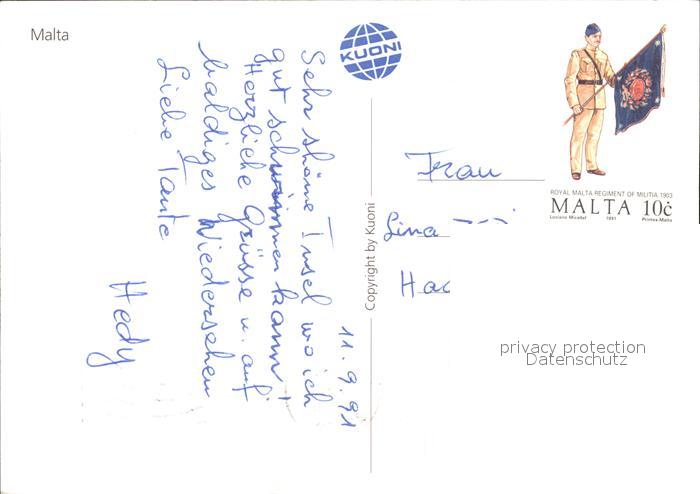 Malta
KUONI
11.9.91
Sehr schöne Insel wo ich
gut schwimmen kann!
Herzliche Grüsse u. auf
baldiges Wiedersehen
Liebe Tante
Hedy
Copyright by Kuoni
Frau
Lina
Hac
ROYAL MALTA REGIMENT OF MILITIA 1903
MALTA 10c
Luciano Micallef 1991 Printex-Malta
privacy protection
Datenschutz